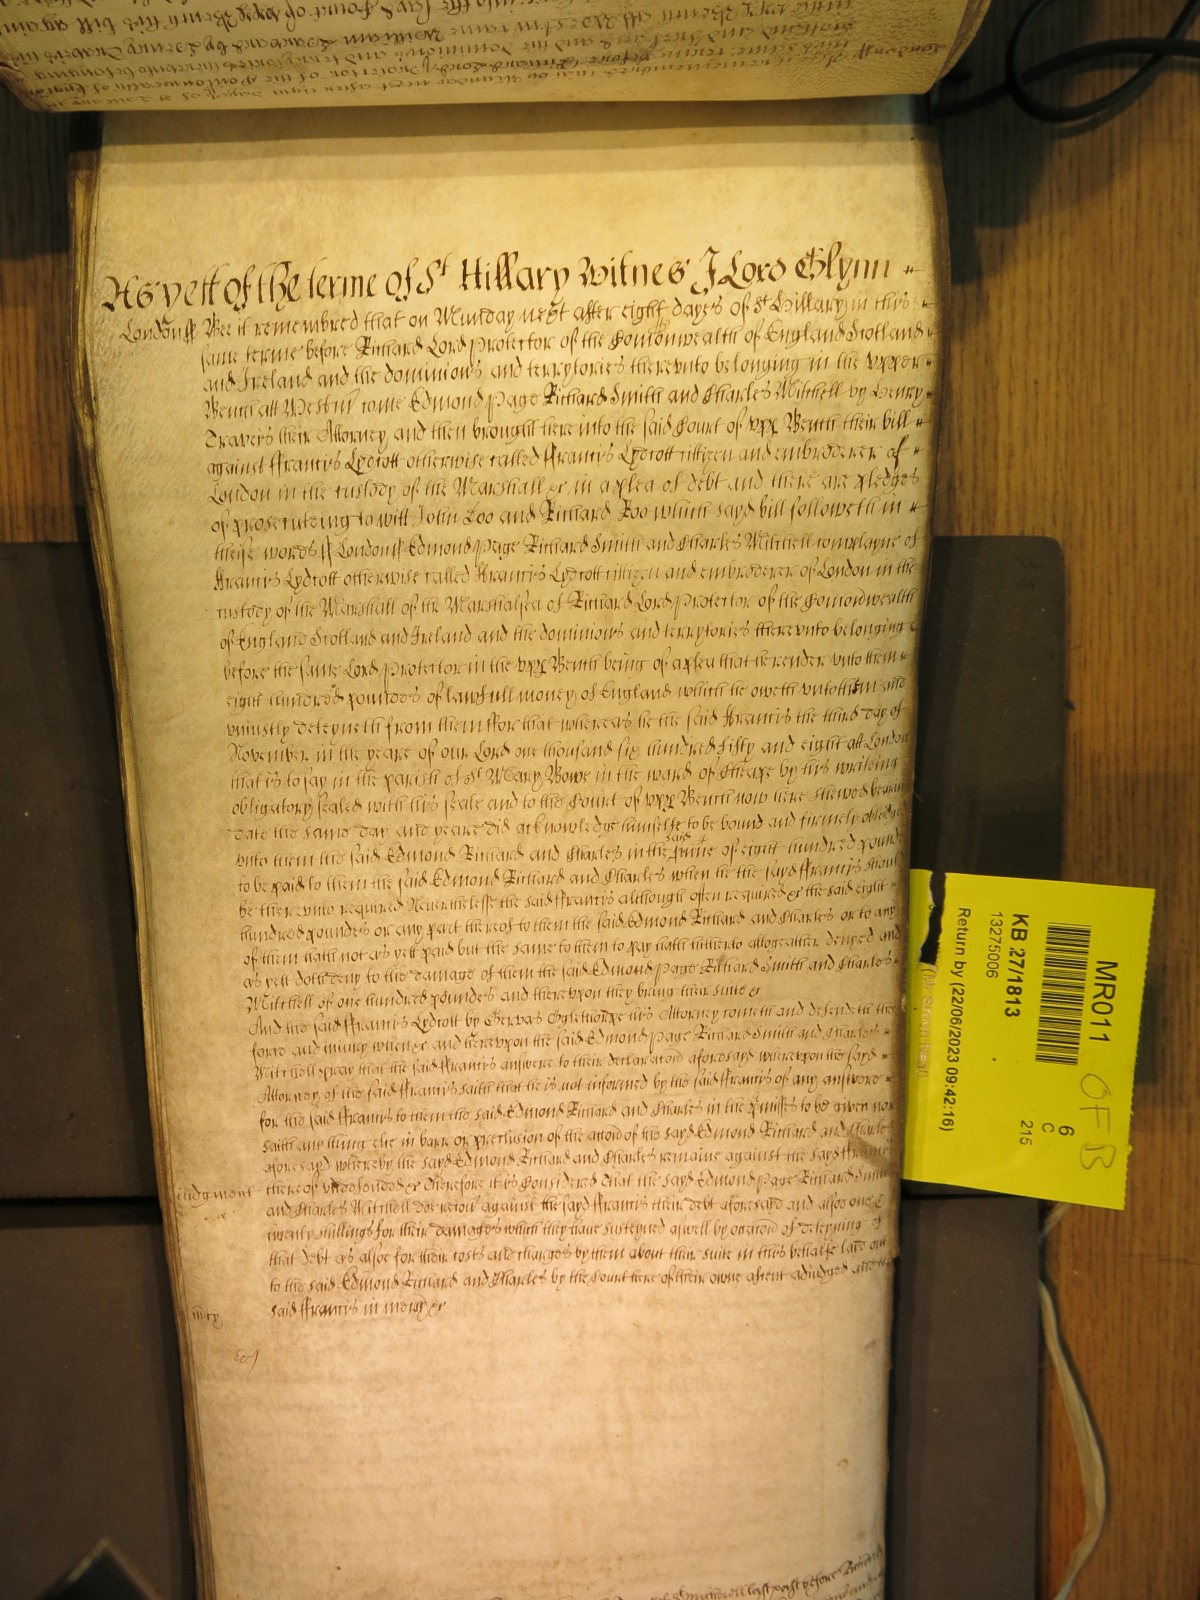 As yett of the terme of St Hillary Witnes J Lord Glynn
London ss Bee it remembred that on Munday next after eight dayes of St Hillary in this
same terme before Richard Lord Protector of the Comonwealth of England Scotland
and Ireland and the dominions and terrytories therevnto belonging in the vpper
Bench att Westmr come Edmond Page Richard Smith and Charles Mitchell by Henry
Travers their Attorney and then brought here into the said Court of vpp Bench their bill
against ffrancis Lydcott otherwise called ffrancis Lydcott cittizen and embroderer of
London in the custody of the Marshall &c in a plea of debt and there are pledges
of prosecuteing to witt John Doo and Richard Roo which sayd bill followeth in
theise words ss London ss Edmond Page Richard Smith and Charles Mitchell complayne of
ffrancis Lydcott otherwise called ffrancis Lydcott cittizen and embroderer of London in the
custody of the Marshall of the Marshalsea of Richard Lord Protector of the Comonwealth
of England Scotland and Ireland and the dominions and terrytories therevnto belonging
before the same Lord Protector in the vpp Bench being of a plea that he render vnto them
eight hundred poundes of lawfull money of England which he oweth vnto them and
vniustly deteyneth from them ffor that whereas he the said ffrancis the third day of
November in the yeare of our Lord one thousand six hundred fifty and eight att London
that is to say in the parish of St Mary Bowe in the ward of Cheape by his writeing
obligatory sealed with his seale and to the Court of vpp Bench now here shewed bearing
date the same day and yeare did acknowledge himselfe to be bound and firmely obliedged
vnto them the said Edmond Richard and Charles in the said summe of eight hundred pounde
to be paid to them the said Edmond Richard and Charles when he the sayd ffrancis should
be therevnto required Neverthelesse the said ffrancis although often required &c the said eight
hundred poundes or any part thereof to them the said Edmond Richard and Charles or to any
of them hath not as yett paid but the same to them to pay hath hitherto altogeather denyed and
as yett doth deny to the damage of them the said Edmond Page Richard Smith and Charles
Mitchell of one hundred poundes and therevpon they bring their suite &c
And the said ffrancis Lydcott by Gervas Oglethorpe his Attorney cometh and defendeth the
force and iniury when &c and therevpon the said Edmond Page Richard Smith and Charles
Mitchell pray that the said ffrancis answere to their declaracion aforesayd wherevpon the sayd
Attorney of the said ffrancis saith that he is not informed by the said ffrancis of any answere
for the said ffrancis to them the said Edmond Richard and Charles in the p'misses to be given nor
saith any thing else in barr or preclusion of the accion of the sayd Edmond Richard and Charles
aforesayd whereby the sayd Edmond Richard and Charles remaine against the sayd ffrancis
iudgment thereof vndefended &c Therefore it is Considered that the sayd Edmond Page Richard Smith
and Charles Mitchell doe recover against the sayd ffrancis their debt aforesayd and alsoe one &
twenty shillings for their damages which they have susteyned aswell by occasion of deteyning of
that debt as alsoe for their costs and charges by them about their suite in this behalfe laid out
to the said Edmond Richard and Charles by the Court here of their owne assent adiudged and the
mcy said ffrancis in mercy &c
MR011
6
C
215
OFB
KB 27/1813
13275006
Return by (22/06/2023 09:42:16)